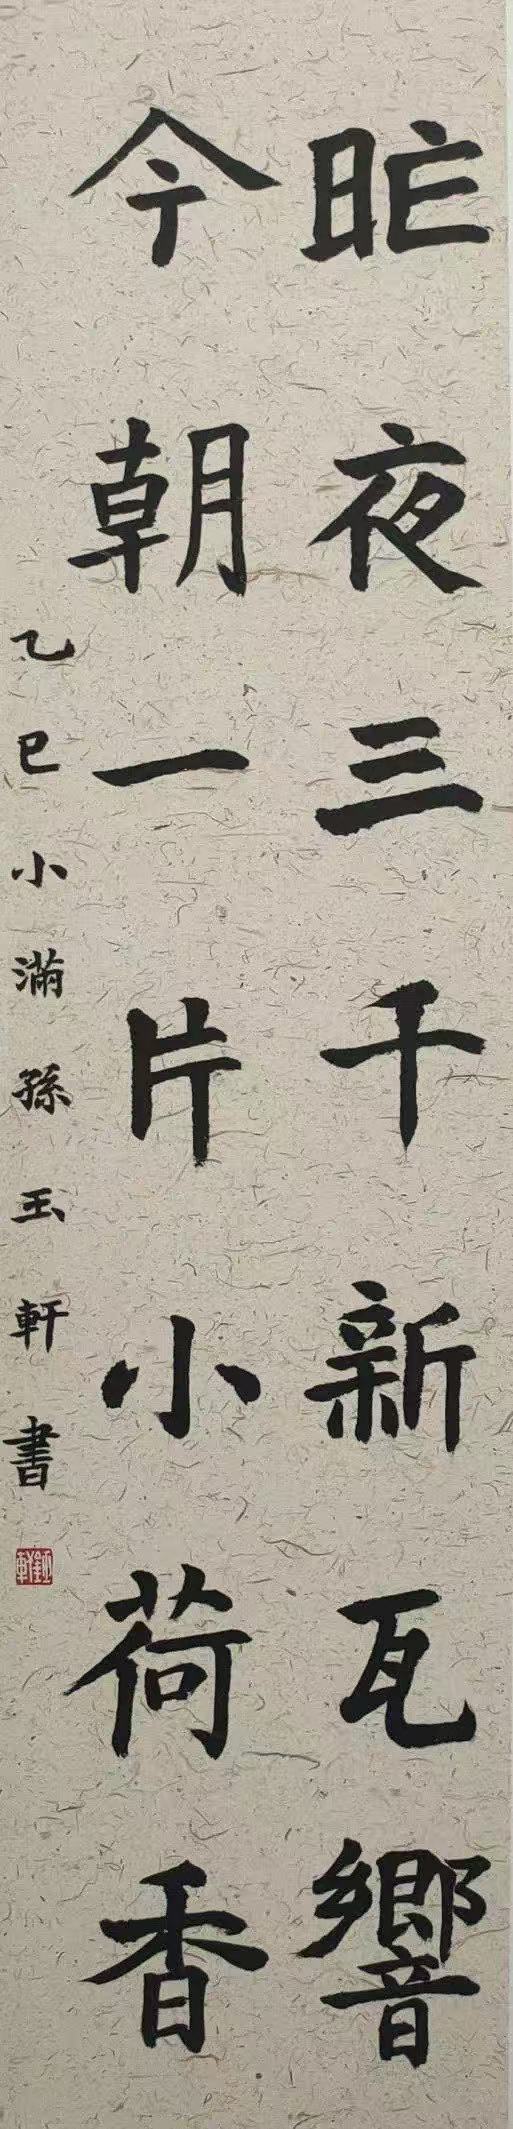 昨夜三千新瓦響
今朝一片小荷香
乙巳小滿孫玉軒書